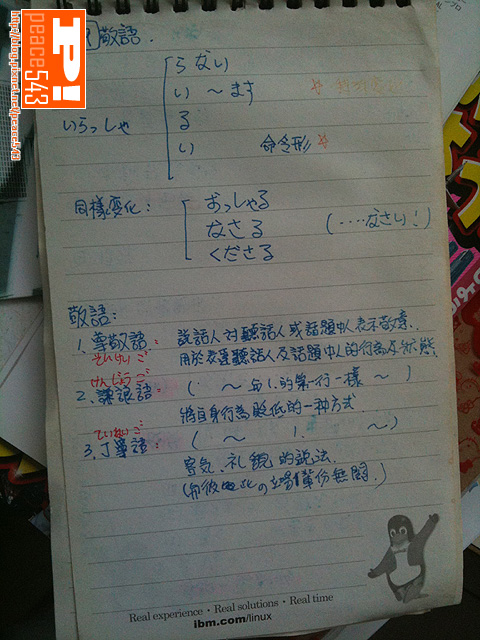 http://blog.pixnet.net/peace543
peace543
P!
敬語.
らない
い ～ます
いらっしゃ
る
い 命令形
同樣变化:
おっしゃる
なさる (....なさい!)
くださる
敬語:
1. 尊敬語: 說話人対聽話人或話題中人表示敬意.
そんけいご
用於表達聽話人及話題中人的行為及狀態
けんじょうご
2. 謙譲語: ( ～ 与1.的第一行一樣 ～ )
將自身行為貶低的一种方式.
ていねいご
3. 丁寧語: ( ～ 1. ～)
客気、礼貌的説法.
Real experience • Real solutions • Real time
ibm.com/linux